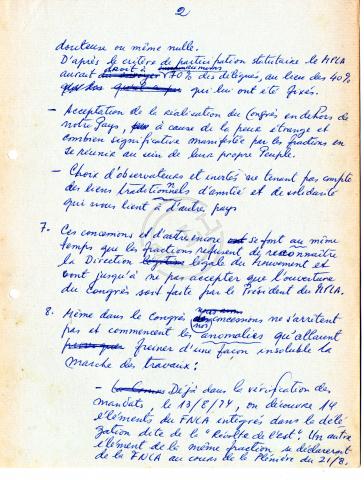 2
douteuse ou même nulle.
D'après le critère de participation statutaire le MPLA
aurait droit à au moins 70% des délégués, au lieu des 40%
qui lui ont été fixés.
- Acceptation de la réalisation du Congrès en dehors de
notre Pays, à cause de la peur étrange et
combien significative manifestée par les fractions en
se réunir au sein de leur propre Peuple.
- Choix d'observateurs et invités ne tenant pas compte
des liens traditionnels d'amitié et de solidarité
qui nous lient à d'autres pays
7. Ces concessions et d'autres encore se font au même
temps que les fractions refusent de reconnaître
la Direction légale du Mouvement et
vont jusqu'à ne pas accepter que l'ouverture
du Congrès soit faite par le Président du MPLA.
8. Même dans le Congrès nos concessions ne s'arrêtent
pas et commencent les anomalies qu'allaient
freiner d'une façon insoluble la
marche des travaux:
- Déjà dans la vérification des
mandats, le 13/8/74, on découvre 14
éléments du FNLA intégrés dans la délé
gation dite de la "Révolte de l'est". Un autre
élément de la même fraction se déclarerait
de la FNLA au cours de la Plénière du 21/8.